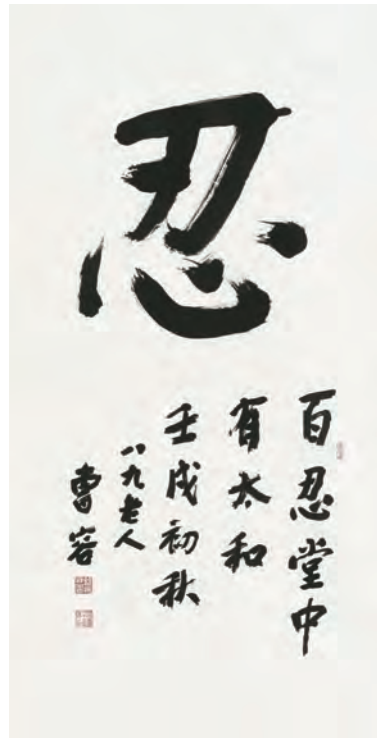 忍
百忍堂中
有太和
壬戌初秋
八九老人
曹容